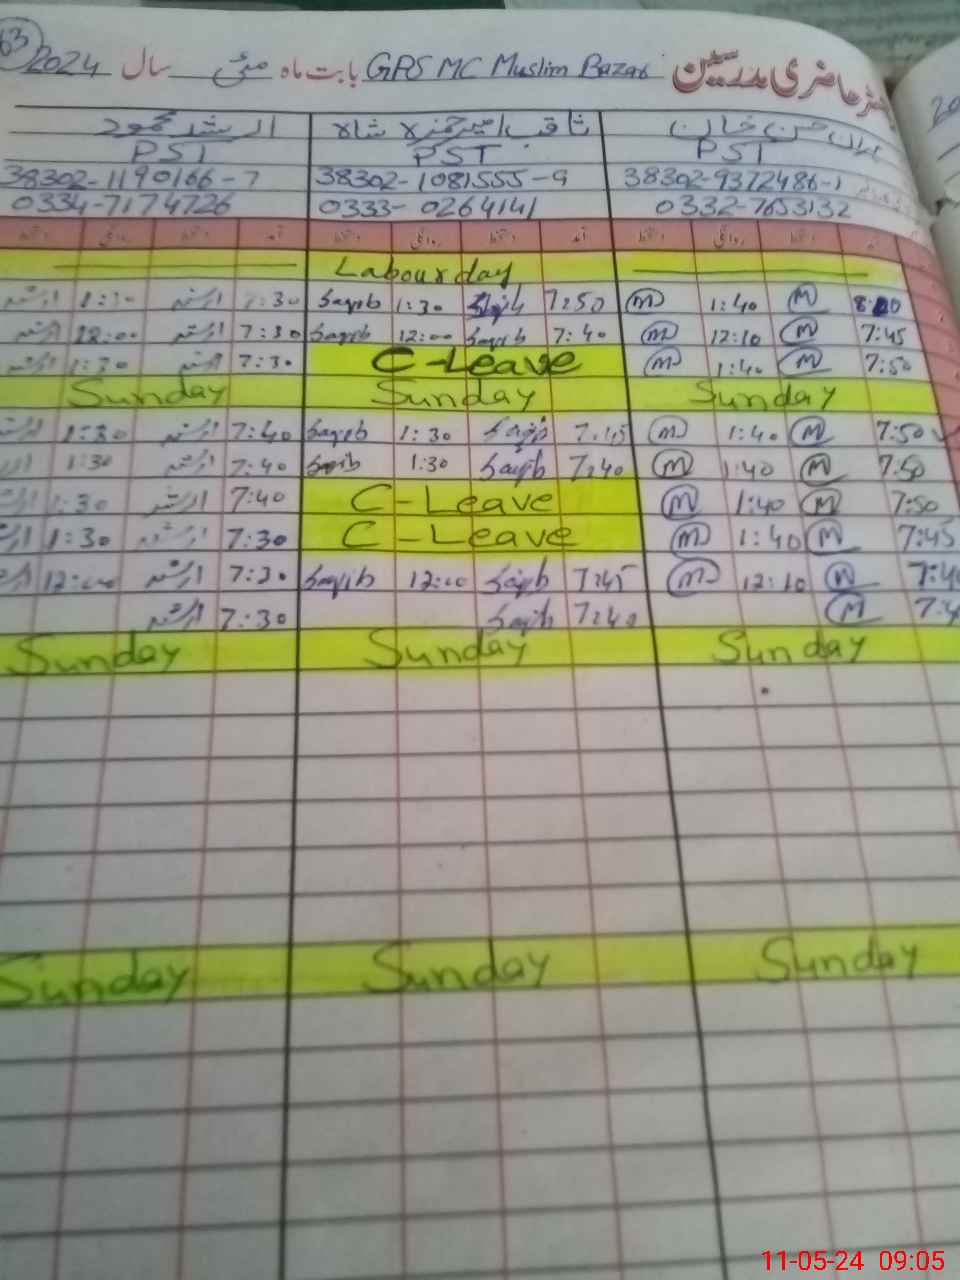 63
رجسٹر حاضری مدرسین GPS MC Muslim Bazar بابت ماہ مئی سال 2024
حسن خان ثاقب امیر حمزہ شاہ ارشد محمود
PST PST PST
38302-9372486-1 38302-1081555-9 38302-1190166-7
0332-7653132 0333-0264141 0334-7174726
آمد دستخط روانگی دستخط آمد دستخط روانگی دستخط آمد دستخط روانگی دستخط
Labour day
8:00 M 1:40 M 7:50 Saqib 1:30 Saqib 7:30 ارشد 1:30 ارشد
7:45 M 12:10 M 7:40 Saqib 12:00 Saqib 7:30 ارشد 12:00 ارشد
7:50 M 1:40 M C-Leave 7:30 ارشد 1:30 ارشد
Sunday Sunday Sunday
7:50 M 1:40 M 7:45 Saqib 1:30 Saqib 7:40 ارشد 1:30
7:50 M 1:40 M 7:40 Saqib 1:30 Saqib 7:40 ارشد 1:30
7:50 M 1:40 M C-Leave 7:40 ارشد 1:30
7:45 M 1:40 M C-Leave 7:30 ارشد 1:30
7:4 M 12:10 M 7:45 Saqib 12:00 Saqib 7:30 ارشد 12:00
7:4 M 7:40 Saqib 7:30 ارشد
Sunday Sunday Sunday
Sunday Sunday Sunday
11-05-24 09:05